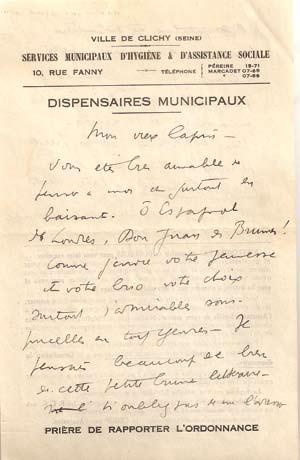 VILLE DE CLICHY (SEINE)
SERVICES MUNICIPAUX D'HYGIÈNE & D'ASSISTANCE SOCIALE
10, RUE FANNY TÉLÉPHONE { PÉREIRE 18-71
MARCADET 07-65
07-66
DISPENSAIRES MUNICIPAUX
Mon vieux lapin –
Vous êtes bien aimable de
penser à moi et surtout en
baisant. Ô Espagnol
de Londres, Don Juan des Brumes!
Comme j'envie votre jeunesse
et votre brio votre choix
surtout d'admirables
pucelles en tout genres – Je
pensais beaucoup de bien
de cette petite brune
n'oubliez pas
PRIÈRE DE RAPPORTER L'ORDONNANCE